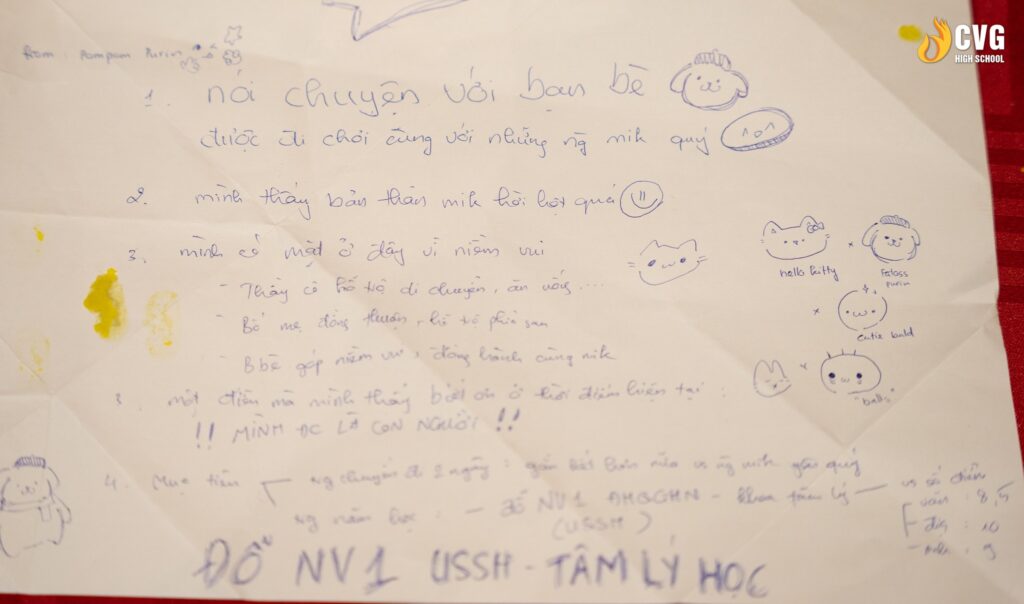 CVG
HIGH SCHOOL
from: Pompom Purin
1. nói chuyện với bạn bè
được đi chơi cùng với những ng mik quý
2. mình thấy bản thân mik hời hợt quá
3. mình có mặt ở đây vì niềm vui
- Thầy cô hỗ trợ di chuyển, ăn uống...
- Bố mẹ đồng thuận, hỗ trợ phía sau
- Bbè góp niềm vui, đồng hành cùng mik
hello kitty
purin
cutie bald
"ball"
3. một điều mà mình thấy biết ơn ở thời điểm hiện tại:
!! MÌNH ĐC LÀ CON NGƯỜI !!
4. Mục tiêu
ng chuyến đi 2 ngày: gắn kết hơn nữa vs ng mik yêu quý
ng năm học: - ĐỖ NV1 ĐHQGHN - khoa tâm lý - vs số điểm
(USSH)
văn: 8,5
địa: 10
9
ĐỖ NV1 USSH - TÂM LÝ HỌC